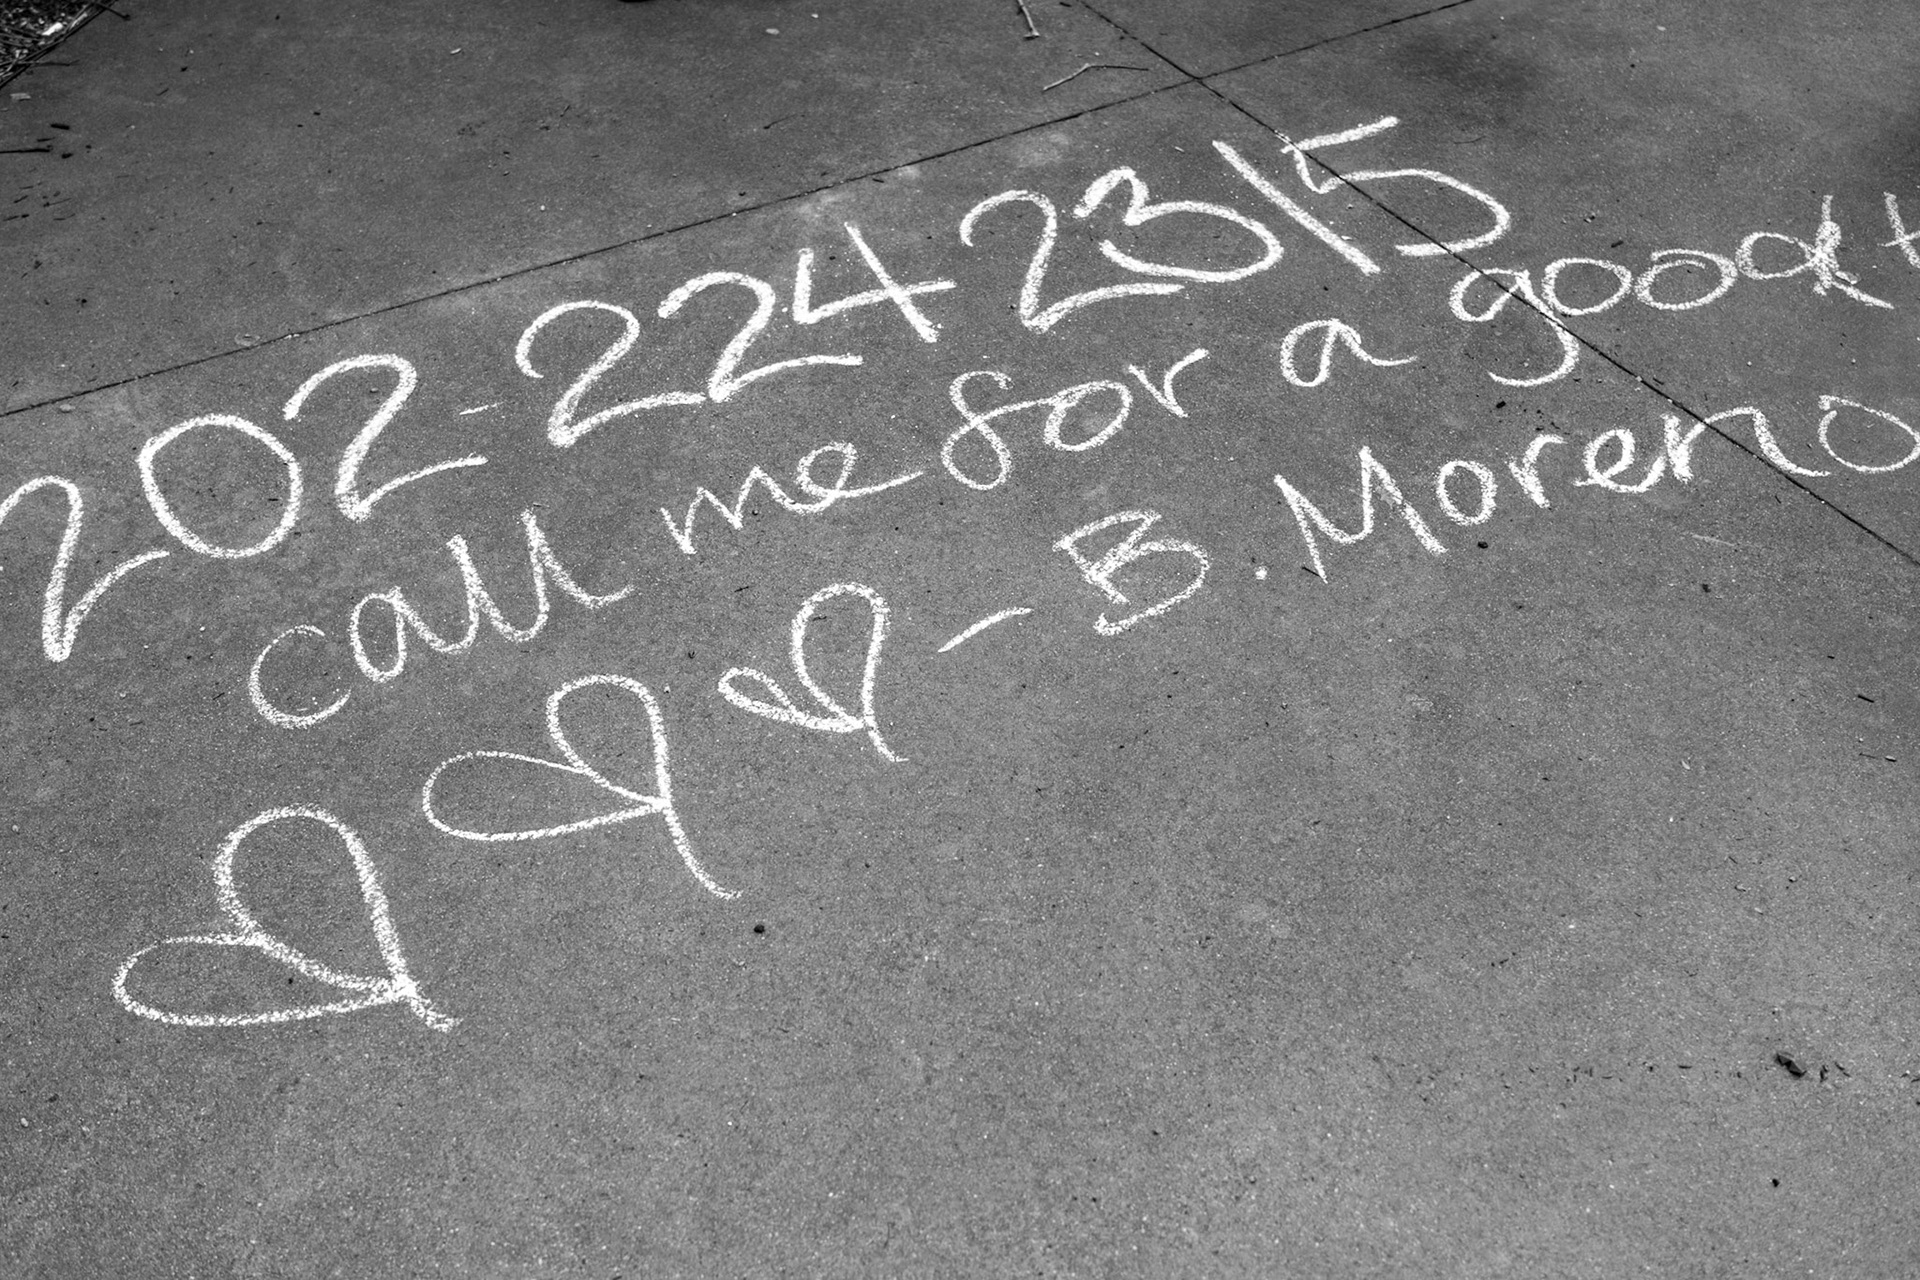 202-224 2315
call me for a good t
- B. Moreno